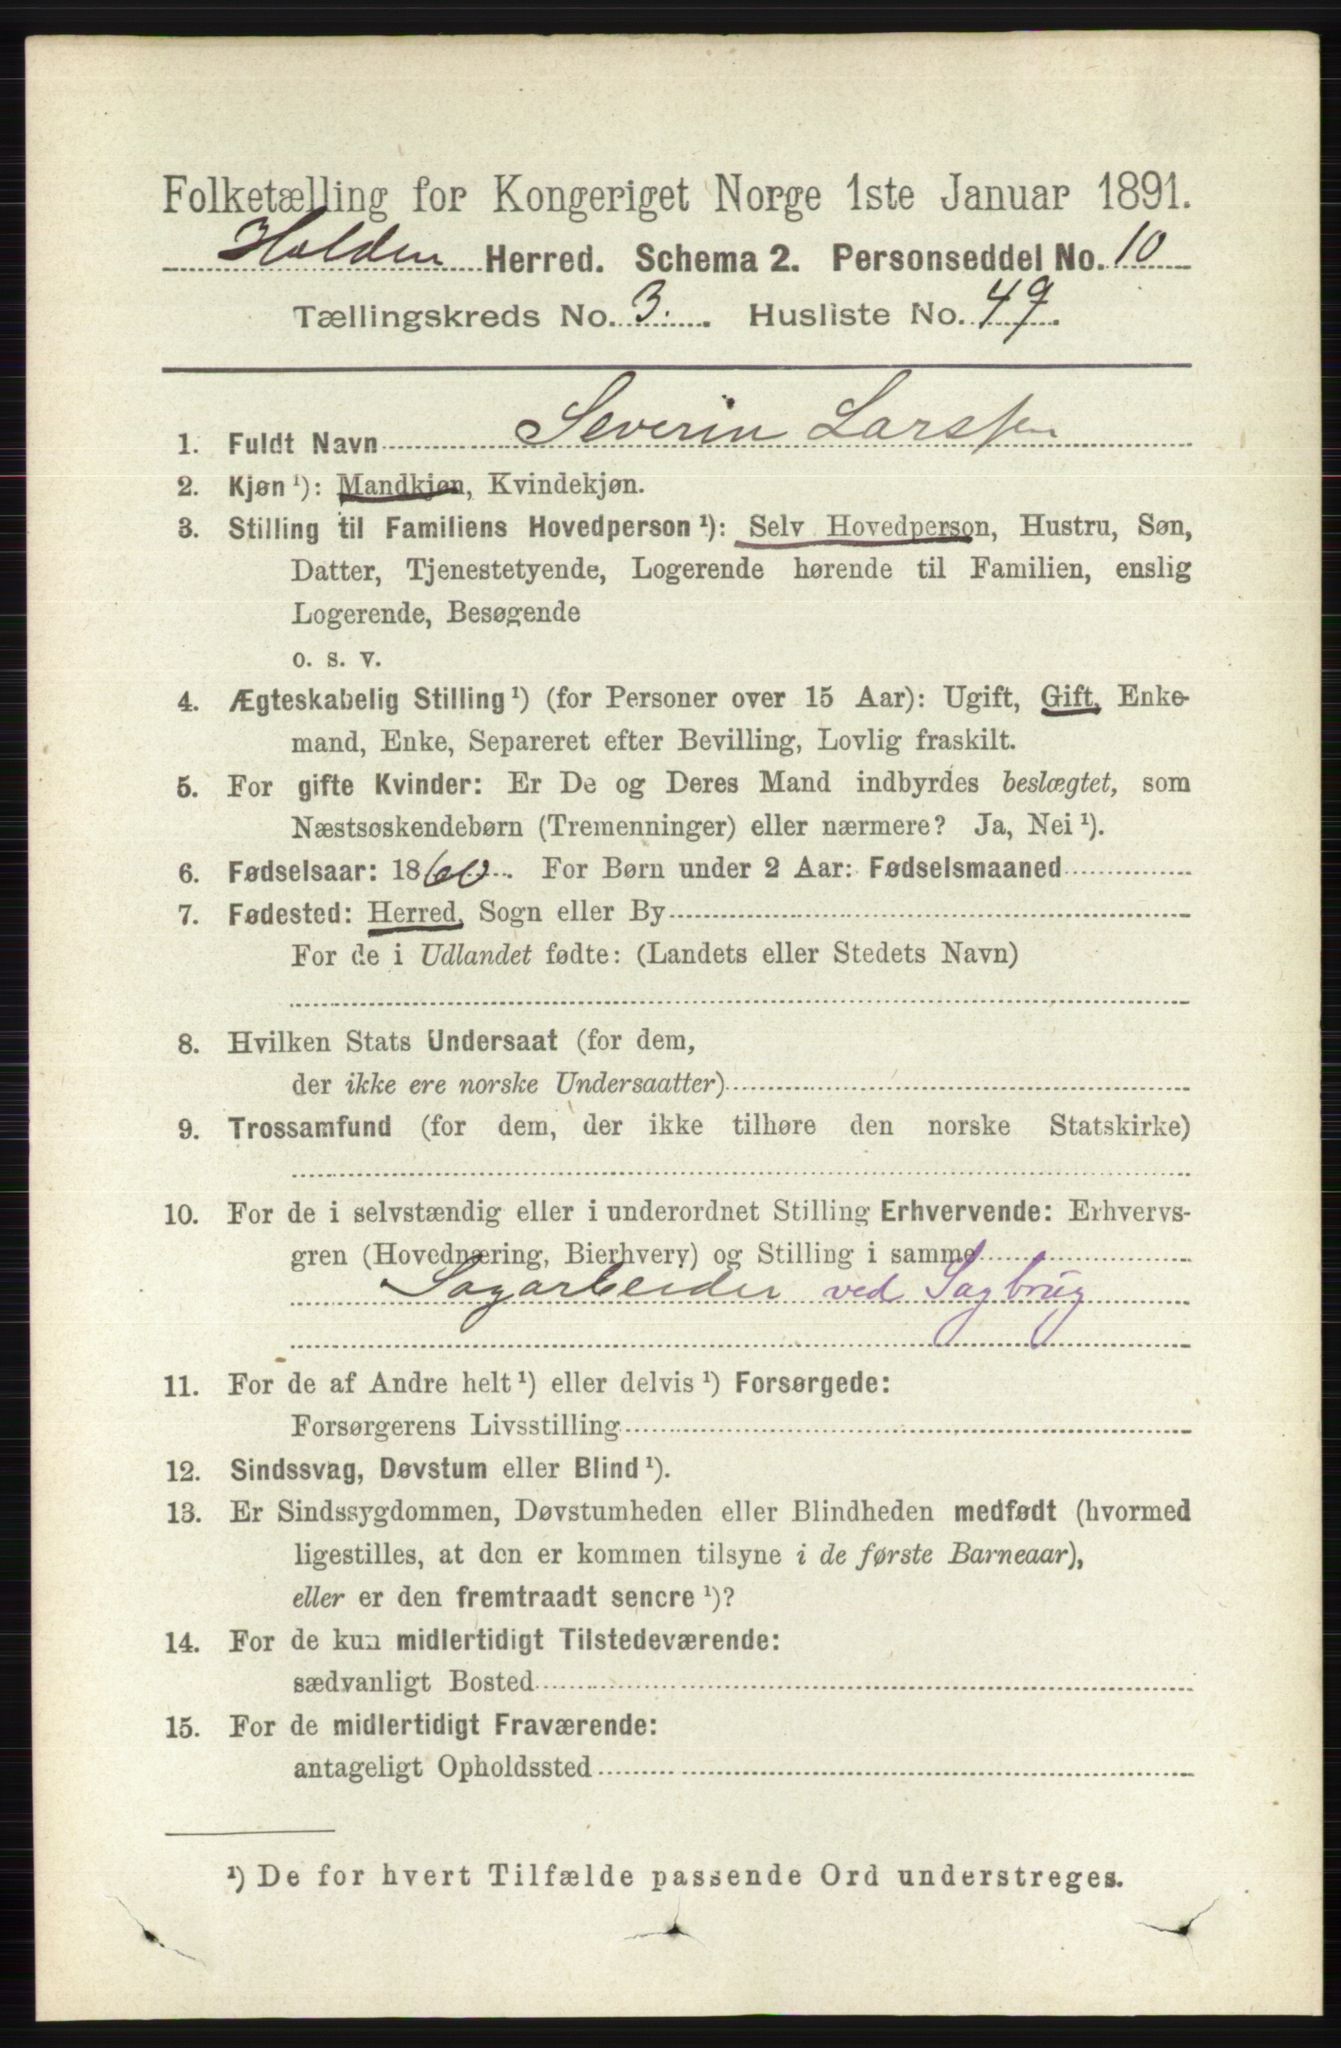 Folketælling for Kongeriget Norge 1ste Januar 1891.
Holden Herred. Schema 2. Personseddel No. 10
Tællingskreds No. 3. Husliste No. 49.
1. Fuldt Navn Severin Larssen
2. Kjøn ¹): Mandkjøn, Kvindekjøn.
3. Stilling til Familiens Hovedperson ¹): Selv Hovedperson, Hustru, Søn,
Datter, Tjenestetyende, Logerende hørende til Familien, enslig
Logerende, Besøgende
o. s. v.
4. Ægteskabelig Stilling ¹) (for Personer over 15 Aar): Ugift, Gift, Enke-
mand, Enke, Separeret efter Bevilling, Lovlig fraskilt.
5. For gifte Kvinder: Er De og Deres Mand indbyrdes beslægtet, som
Næstsøskendebørn (Tremenninger) eller nærmere? Ja, Nei ¹).
6. Fødselsaar: 1860. For Børn under 2 Aar: Fødselsmaaned
7. Fødested: Herred, Sogn eller By
For de i Udlandet fødte: (Landets eller Stedets Navn)
8. Hvilken Stats Undersaat (for dem,
der ikke ere norske Undersaatter)
9. Trossamfund (for dem, der ikke tilhøre den norske Statskirke)
10. For de i selvstændig eller i underordnet Stilling Erhvervende: Erhvervs-
gren (Hovednæring, Bierhverv) og Stilling i samme
Sagarbeider ved Sagbrug
11. For de af Andre helt ¹) eller delvis ¹) Forsørgede:
Forsørgerens Livsstilling
12. Sindssvag, Døvstum eller Blind ¹).
13. Er Sindssygdommen, Døvstumheden eller Blindheden medfødt (hvormed
ligestilles, at den er kommen tilsyne i de første Barneaar),
eller er den fremtraadt senere ¹)?
14. For de kun midlertidigt Tilstedeværende:
sædvanligt Bosted
15. For de midlertidigt Fraværende:
antageligt Opholdssted
¹) De for hvert Tilfælde passende Ord understreges.